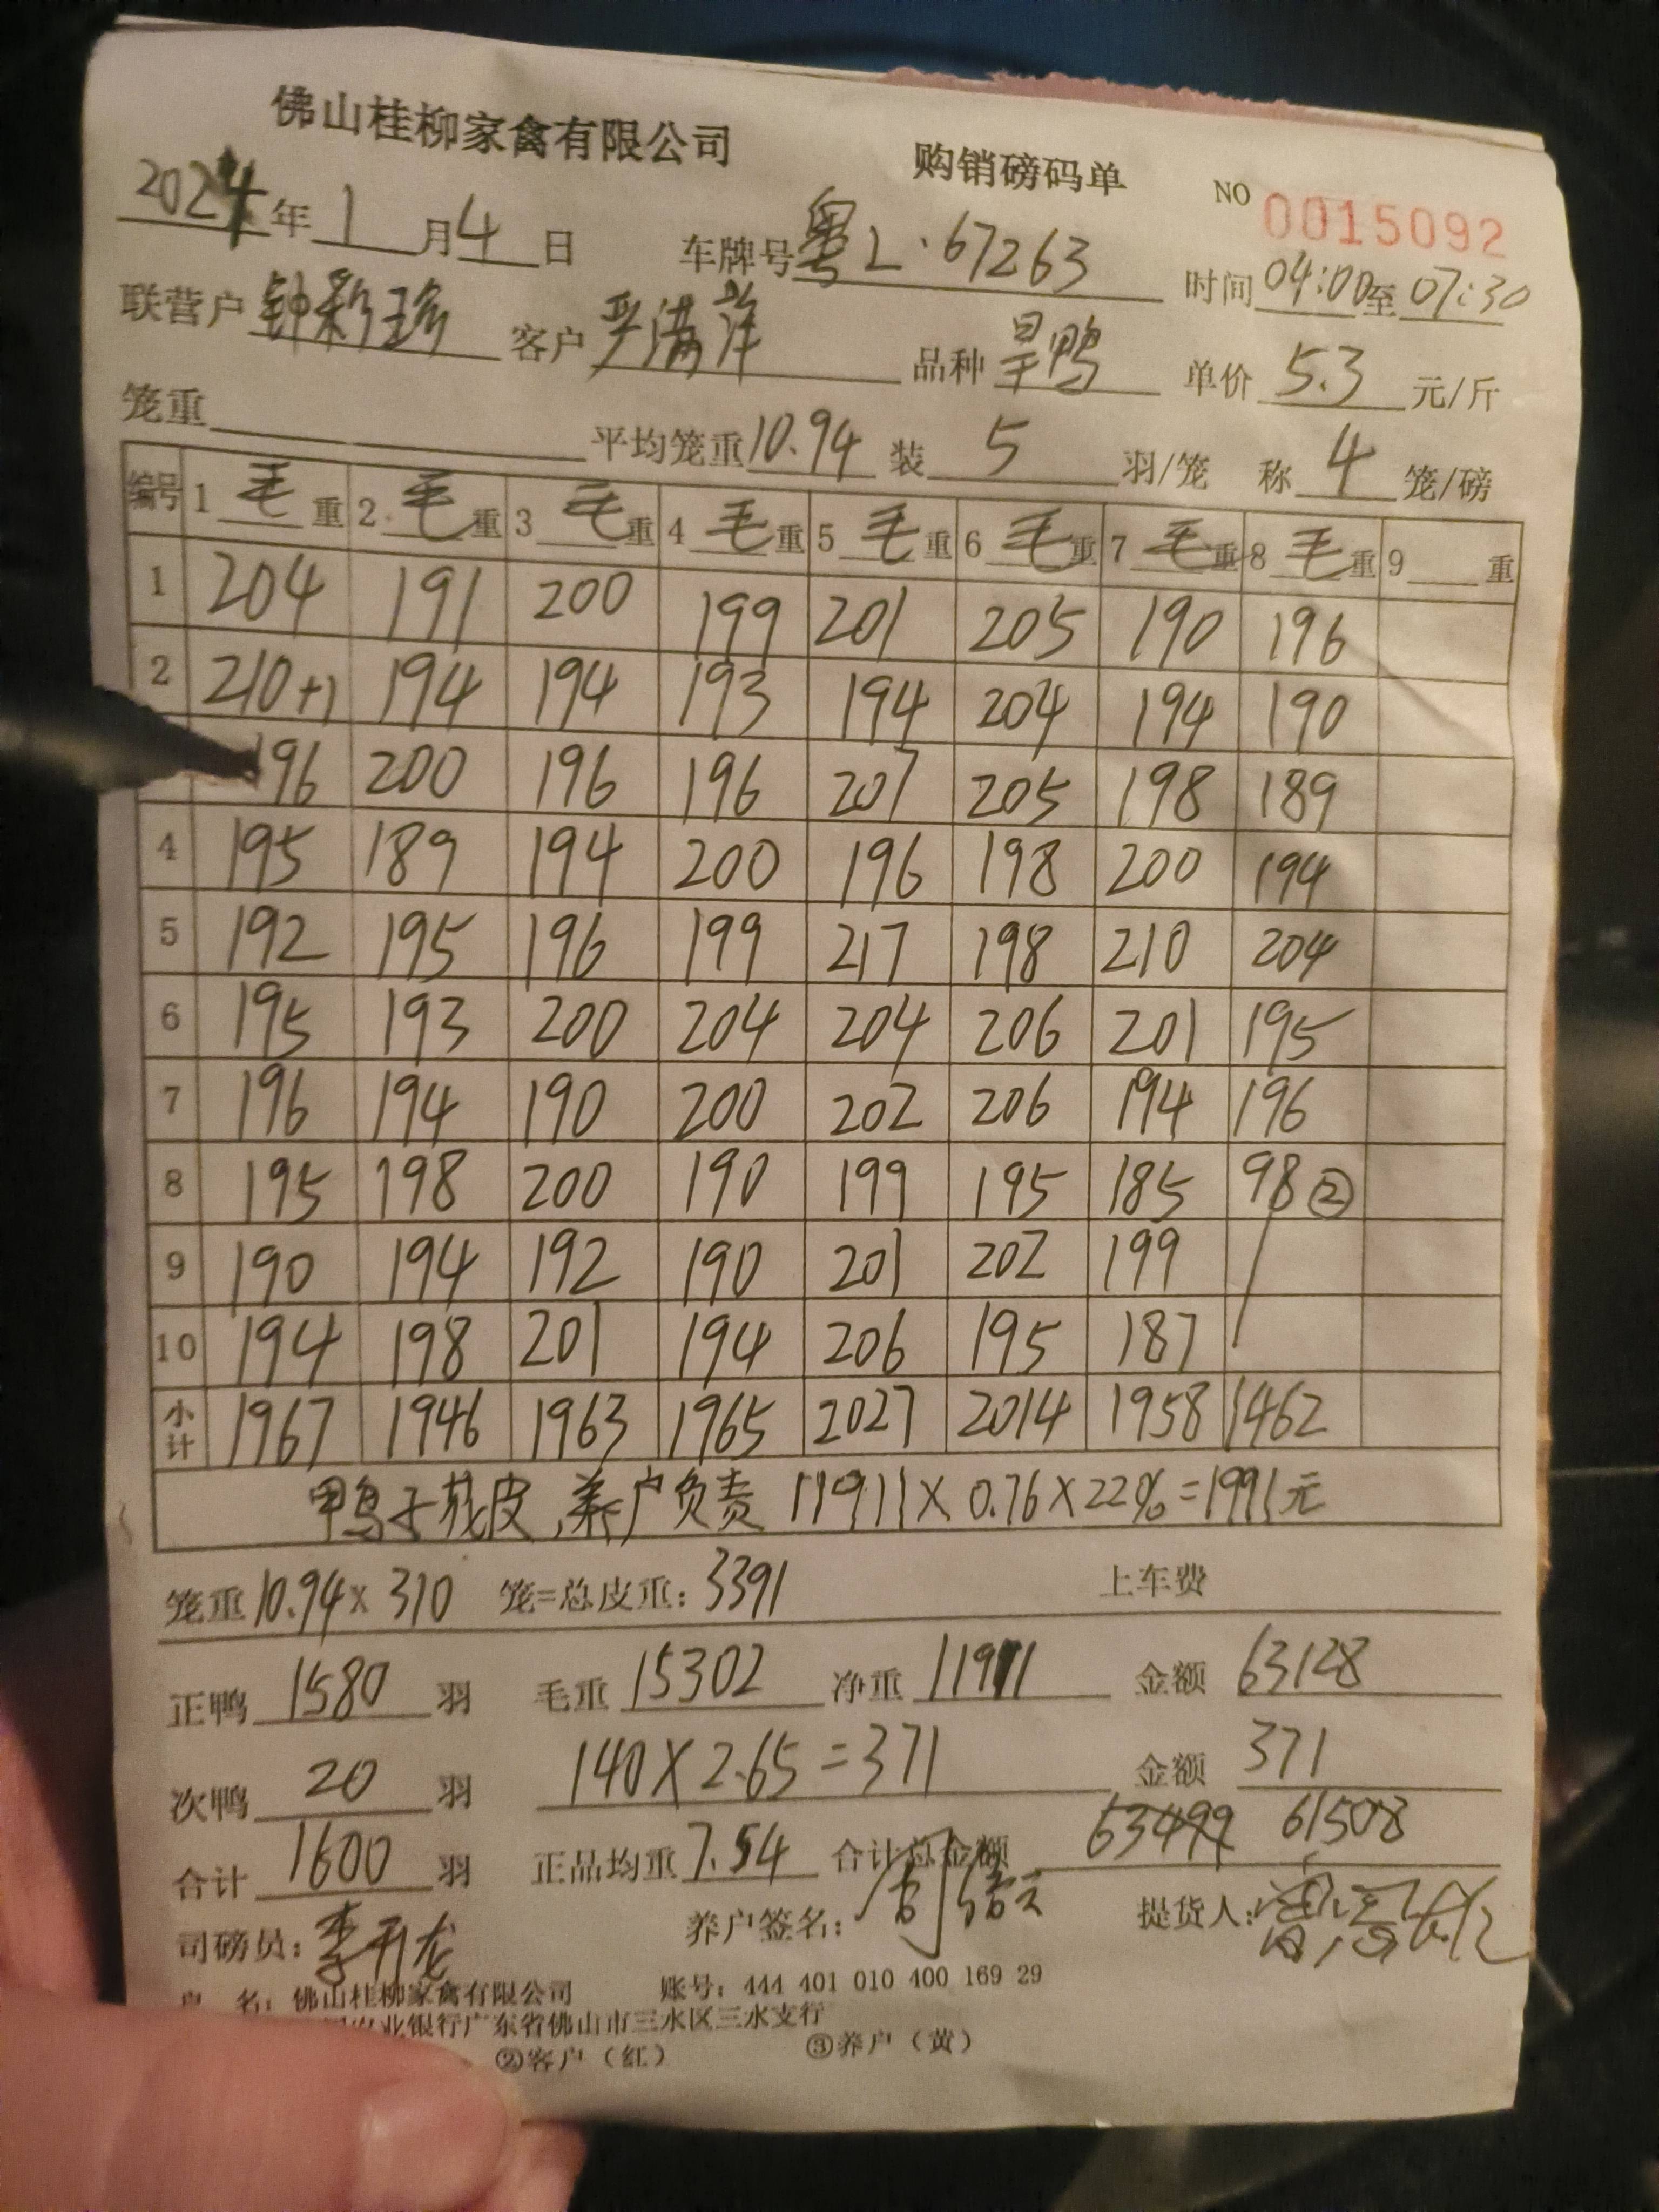 佛山桂柳家禽有限公司 购销磅码单 NO 0015092
2024年1月4日 车牌号粤L·67263 时间04:00至07:30
联营户钟彩珍 客户 满萍 品种 旱鸭 单价 5.3 元/斤
笼重 平均笼重10.94 装 5 羽/笼 称 4 笼/磅
编号 1 毛 重 2 毛 重 3 毛 重 4 毛 重 5 毛 重 6 毛 重 7 毛 重 8 毛 重 9 重
1 204 191 200 199 201 205 190 196
2 210+1 194 194 193 194 204 194 190
196 200 196 196 207 205 198 189
4 195 189 194 200 196 198 200 194
5 192 195 196 199 217 198 210 204
6 195 193 200 204 204 206 201 195
7 196 194 190 200 202 206 194 196
8 195 198 200 190 199 195 185 98②
9 190 194 192 190 201 202 199
10 194 198 201 194 206 195 187
小计 1967 1946 1963 1965 2027 2014 1958 1462
鸭子 皮,养户负责 11911×0.76×22%=1991元
笼重10.94×310 笼=总皮重:3391 上车费
正鸭 1580 羽 毛重 15302 净重 11911 金额 63128
次鸭 20 羽 140×2.65=371 金额 371
合计 1600 羽 正品均重 7.54 合计总金额 63499 61508
司磅员: 李 龙 养户签名: 提货人:
户 名:佛山桂柳家禽有限公司 账号:444 401 010 400 169 29
业银行广东省佛山市三水区三水支行
②客户(红) ③养户(黄)